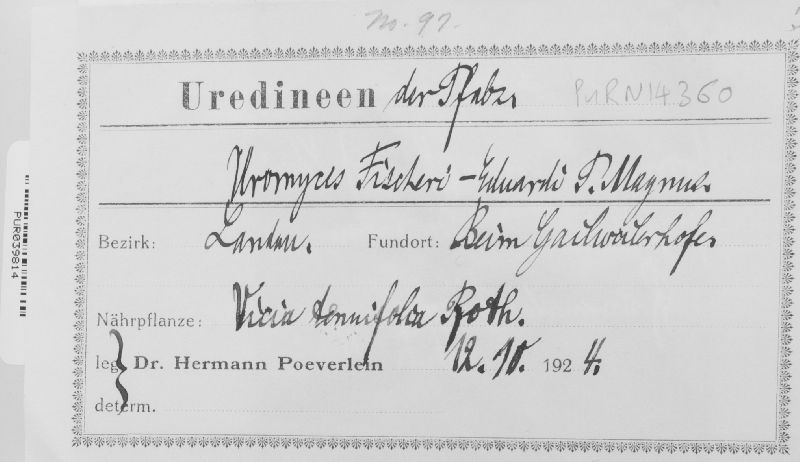 No. 97.
Uredineen der Pfalz. PUR N14360
Uromyces Fischeri-Eduardi P. Magnus.
Bezirk: Landau. Fundort: Beim Gailweilerhofe.
Nährpflanze: Vicia tenuifolia Roth.
leg. Dr. Hermann Poeverlein 12. 10. 1924.
determ.
PUR039814